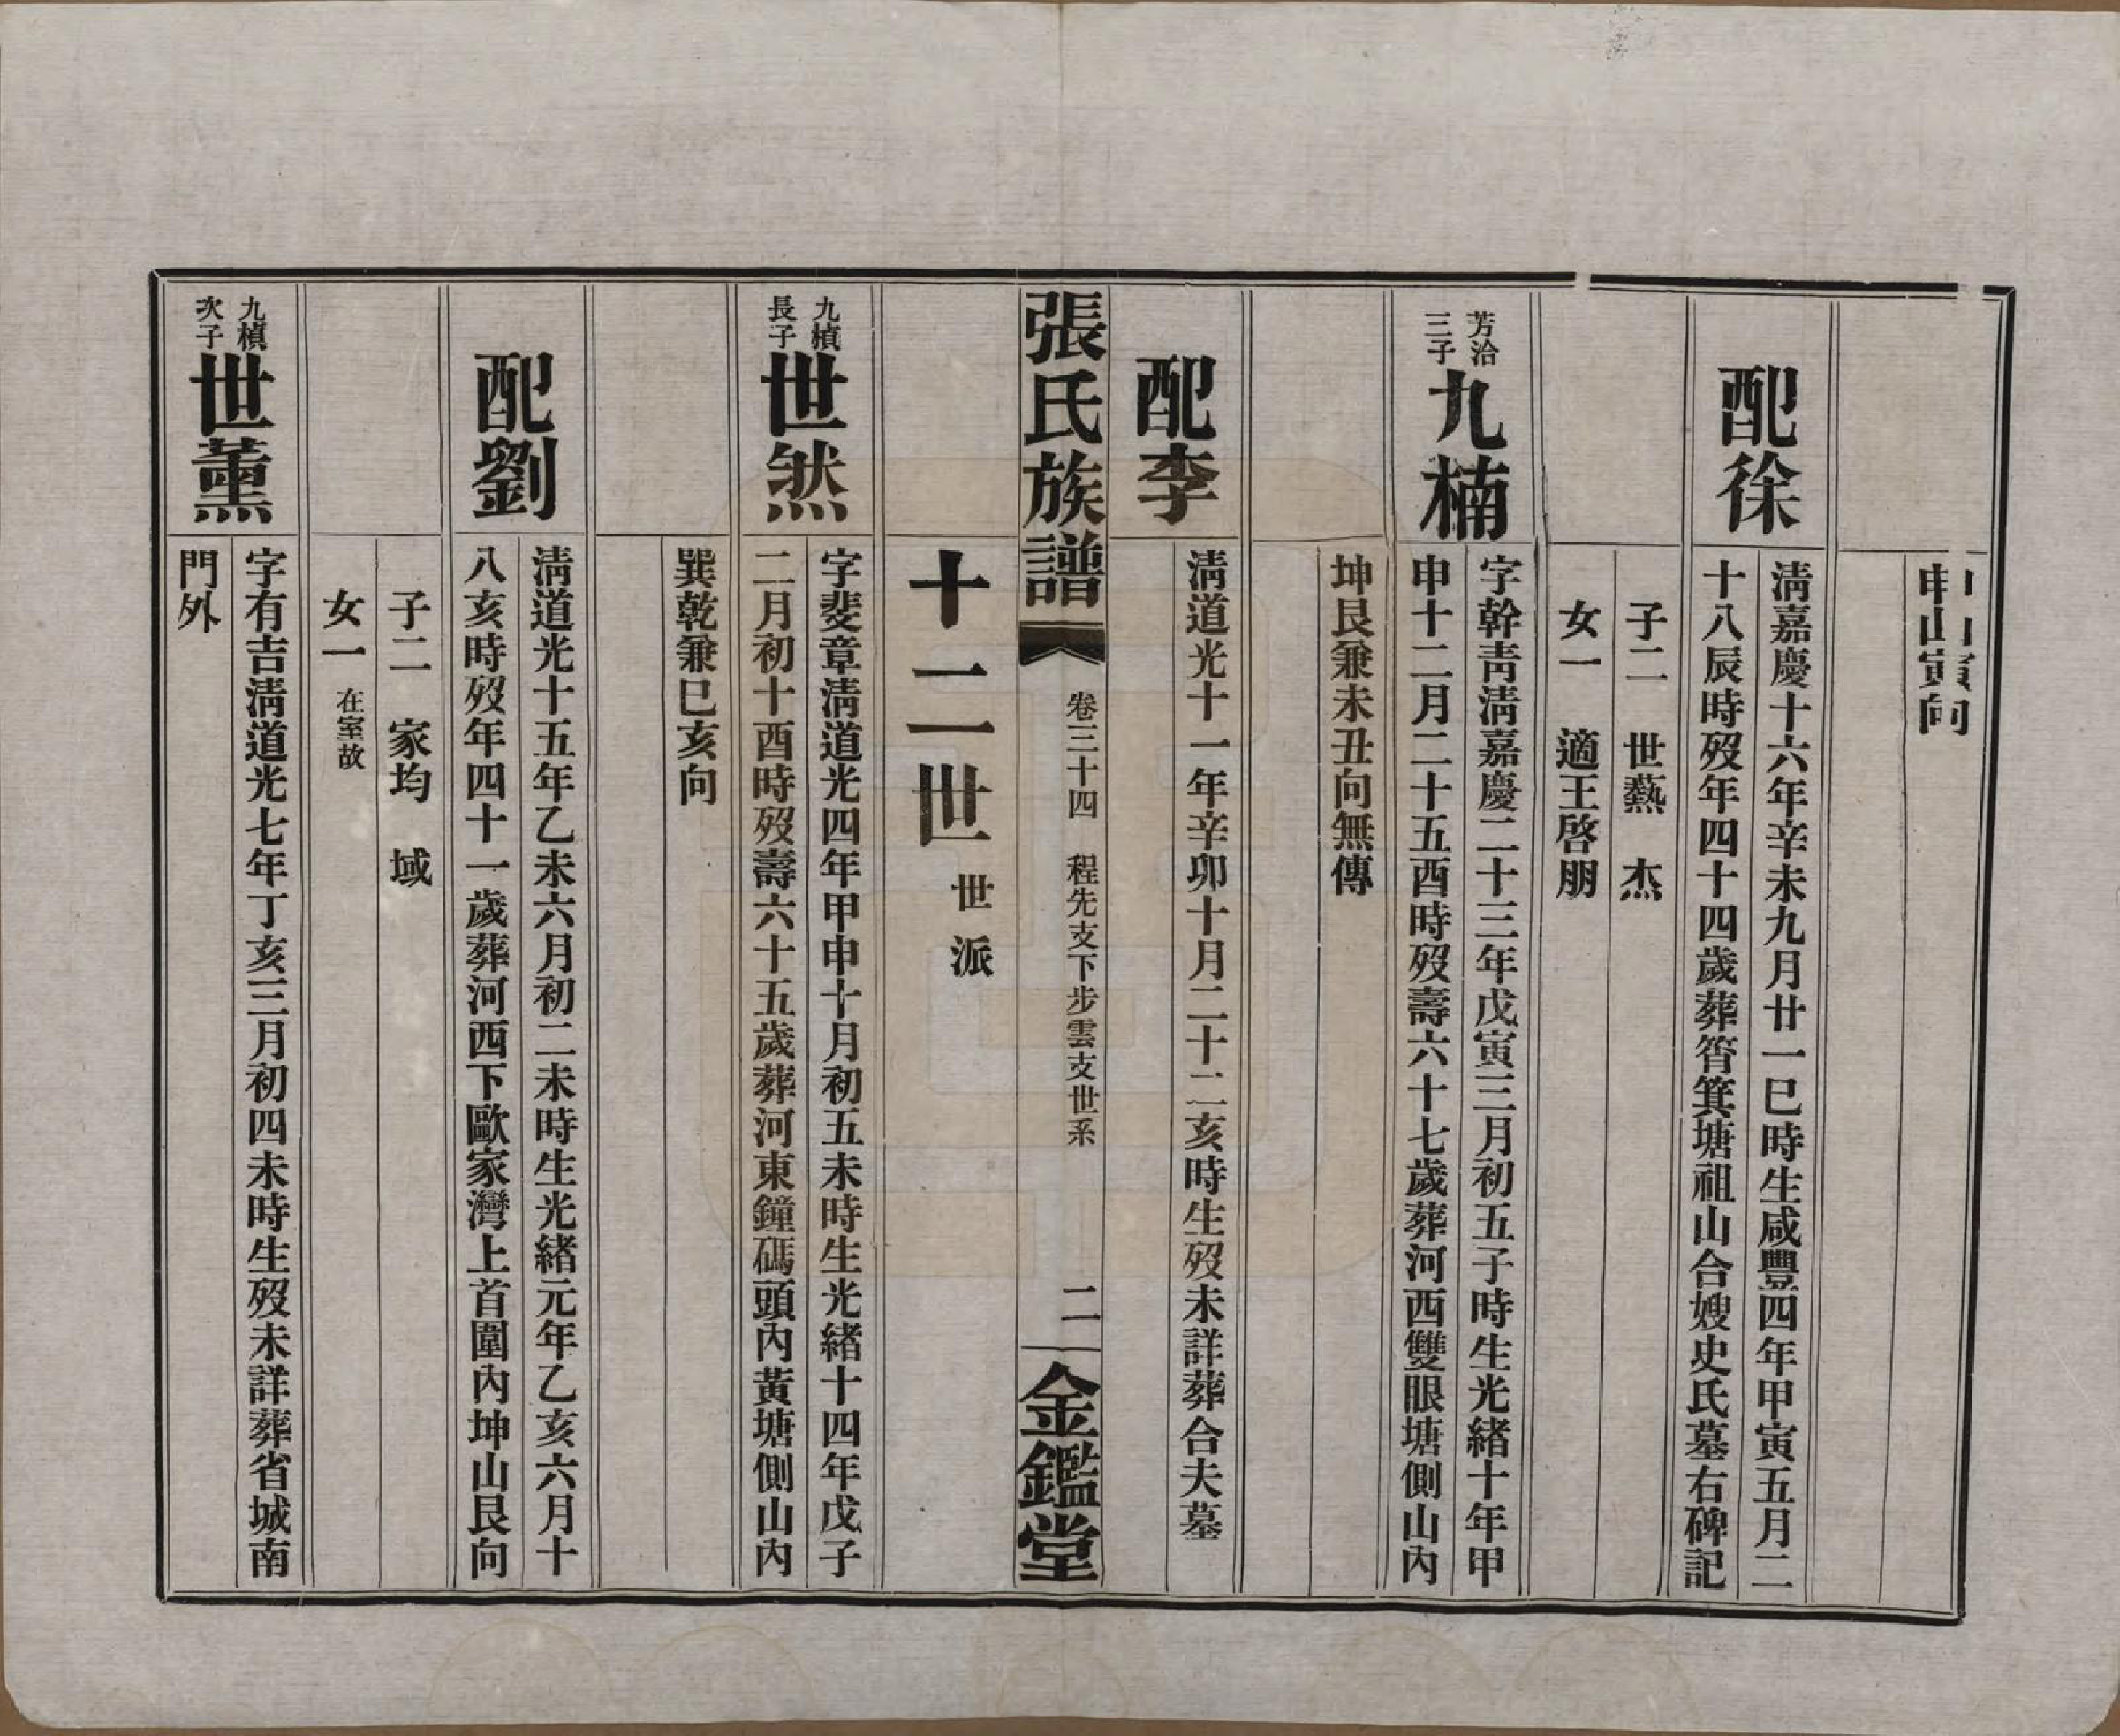 申山寅向
配徐
清嘉慶十六年辛未九月廿一巳時生咸豐四年甲寅五月二
十八辰時歿年四十四歲葬筲箕塘祖山合嫂史氏墓右碑記
子二 世藝 杰
女一 適王啓朋
芳洽
三子
九楠
字幹靑淸嘉慶二十三年戊寅三月初五子時生光緒十年甲
申十二月二十五酉時歿壽六十七歲葬河西雙眼塘側山內
坤艮兼未丑向無傳
配李
淸道光十一年辛卯十月二十二亥時生歿未詳葬合夫墓
張氏族譜
卷三十四 程先支下步雲支世系
二
金鑑堂
十二世
世派
九楨
長子
世然
字斐章淸道光四年甲申十月初五未時生光緒十四年戊子
二月初十酉時歿壽六十五歲葬河東鐘碼頭內黃塘側山內
巽乾兼巳亥向
配劉
淸道光十五年乙未六月初二未時生光緒元年乙亥六月十
八亥時歿年四十一歲葬河西下歐家灣上首圍內坤山艮向
子二 家均 域
女一 在室故
九楨
次子
世薰
字有吉淸道光七年丁亥三月初四未時生歿未詳葬省城南
門外